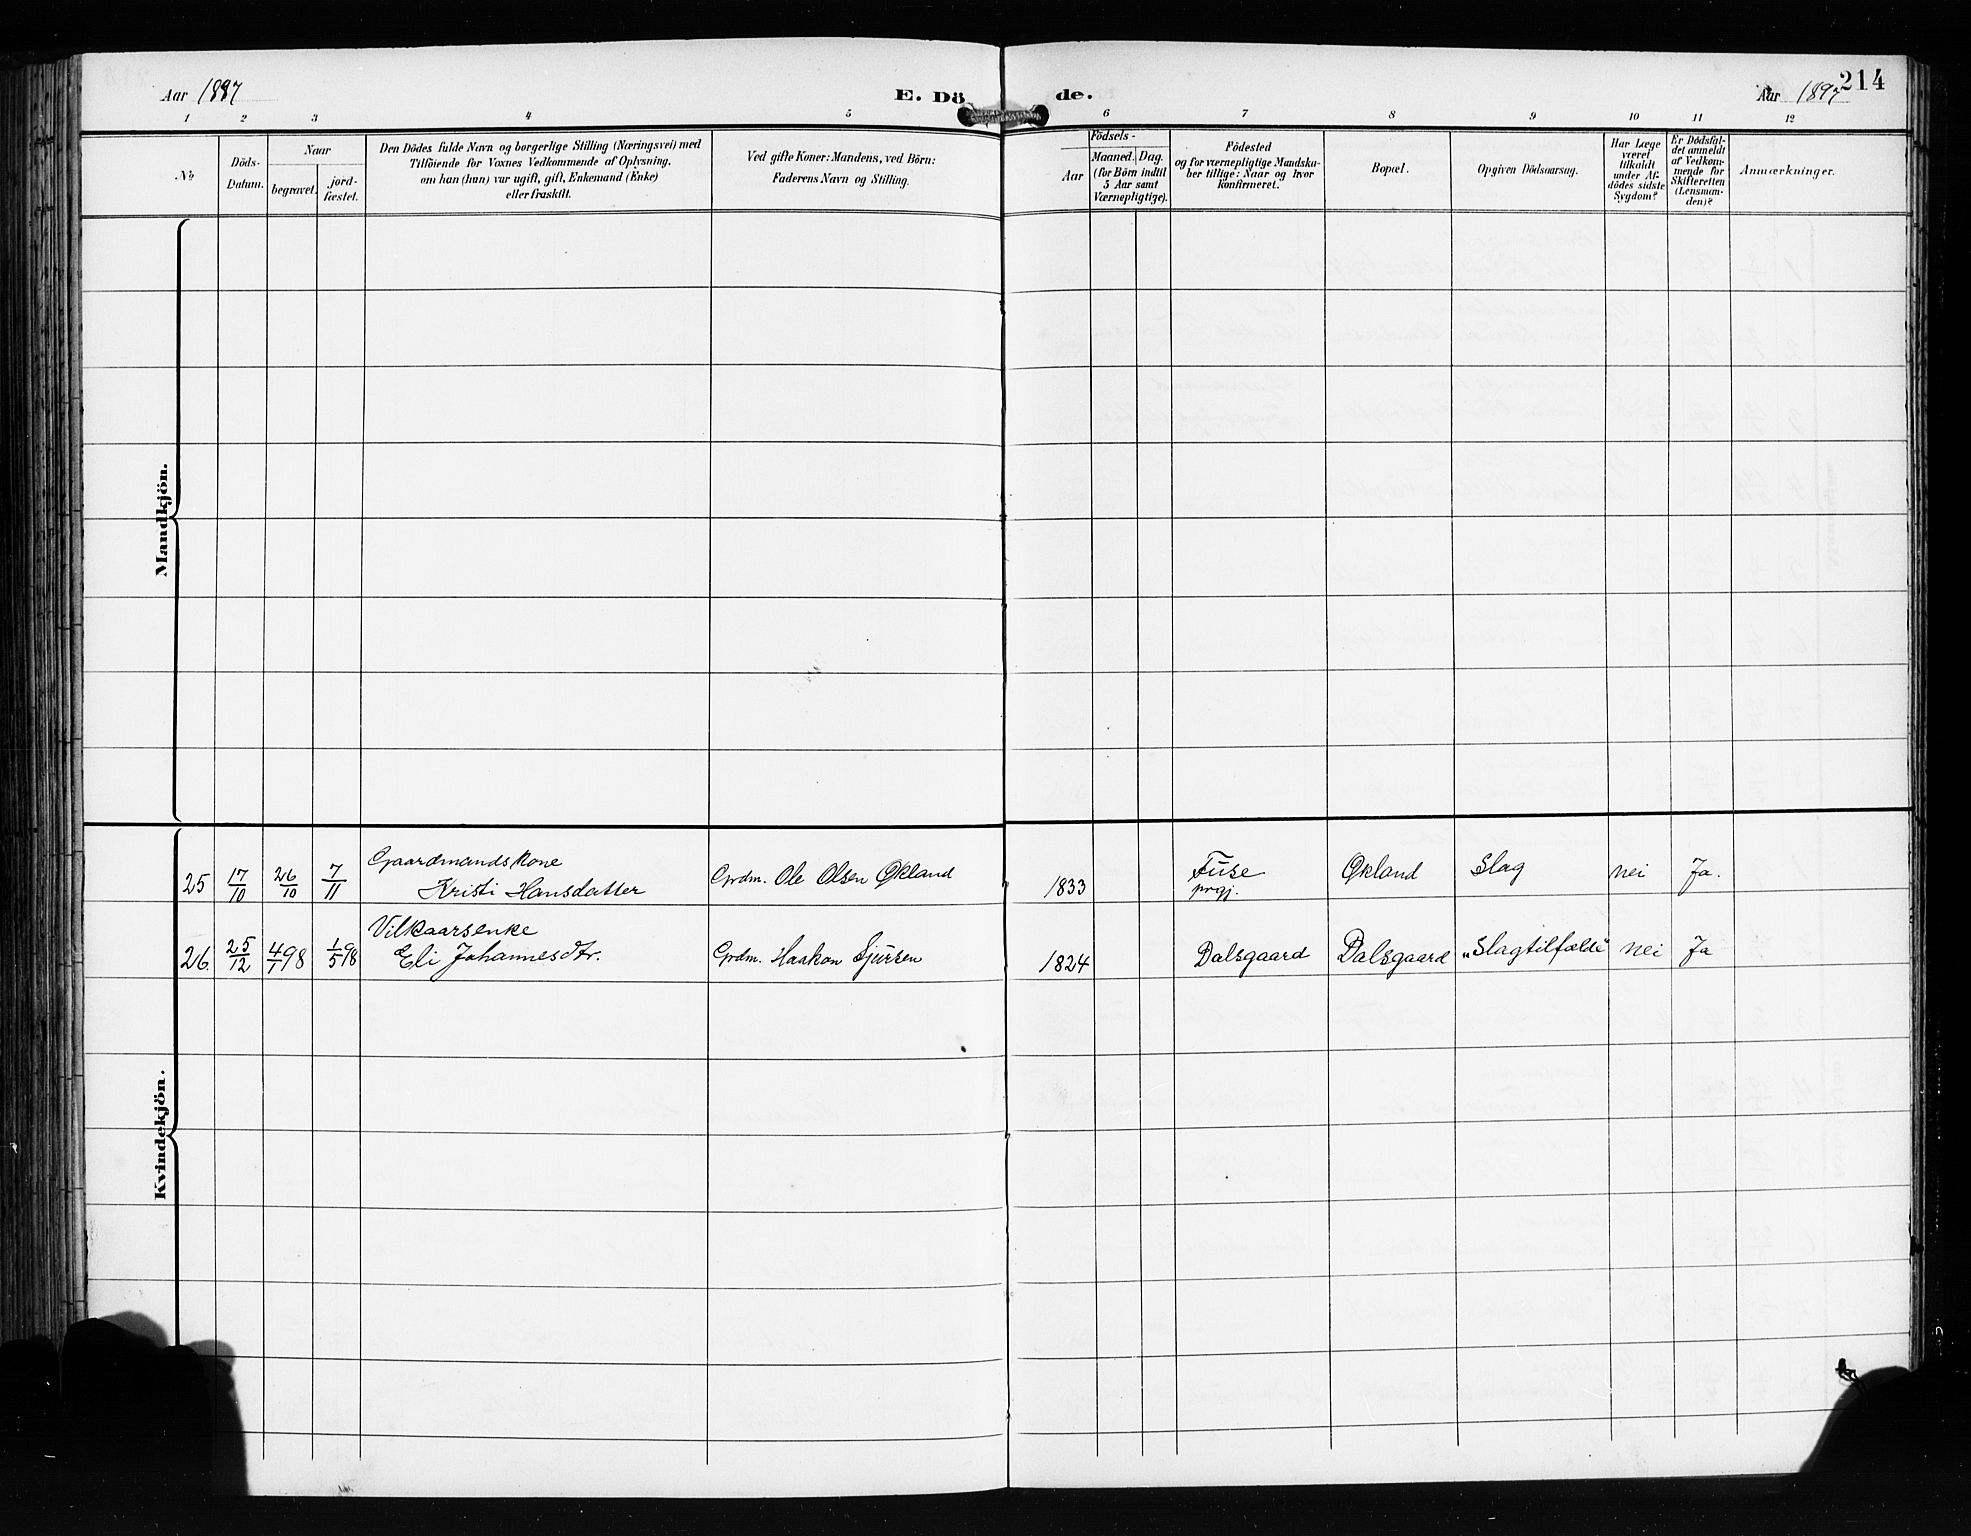 Aar 1897
E. Döde.
Aar 1897
214
1 2 3 4 5 6 7 8 9 10 11 12
No
Döds-Datum.
Naar
begravet.
jord-fæstet.
Den Dödes fulde Navn og borgerlige Stilling (Næringsvei) med
Tilföiende for Voxnes Vedkommende af Oplysning,
om han (hun) var ugift, gift, Enkemand (Enke)
eller fraskilt.
Ved gifte Koner: Mandens, ved Börn:
Faderens Navn og Stilling.
Födsels-
Aar
Maaned. Dag.
(for Börn indtil
5 Aar samt
Værnepligtige).
Födested
og for værnepligtige Mandska-
ber tillige: Naar og hvor
konfirmeret.
Bopæl.
Opgiven Dödsaarsag.
Har Læge
været
tilkaldt
under Af-
dödes sidste
Sygdom?
Er Dödsfal-
det anmeldt
af Vedkom-
mende for
Skifteretten
(Lensman-
den)?
Anmærkninger.
Mandkjön.
Kvindekjön.
25 17/10 26/10 7/11 Gaardmandskone
Kristi Hansdatter
Grdm. Ole Olsen Økland
1833
Fuse
prgj.
Økland
Slag
nei
Ja.
26. 25/12 4/1 98 1/5 98 Vilkaarsenke
Eli Johannesdtr.
Grdm. Haakon Sjursen
1824
Dalsgaard
Dalsgaard
„Slagtilfælde“
nei
Ja